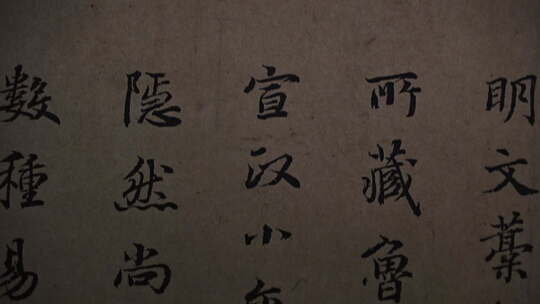 明文藁
所藏魯
宣政小
隱然尚
數種易